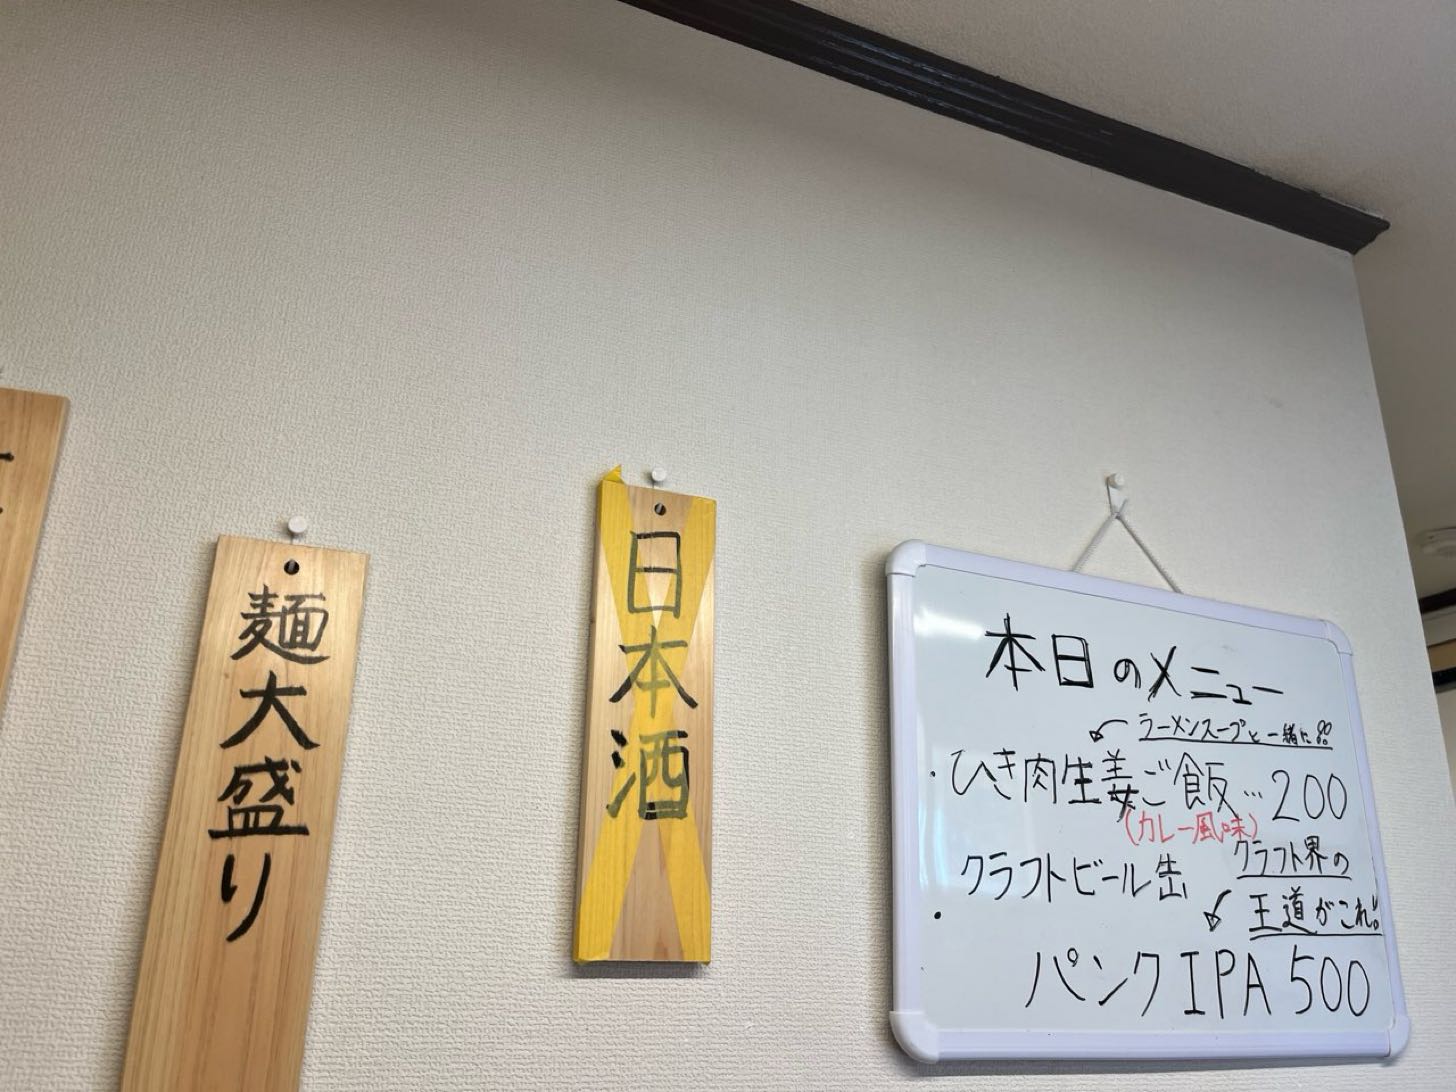 麺大盛り
日本酒
本日のメニュー
ラーメンスープと一緒に!!
・ひき肉生姜ご飯…200
(カレー風味)
・クラフトビール缶
クラフト界の
王道がこれ!!
パンクIPA 500